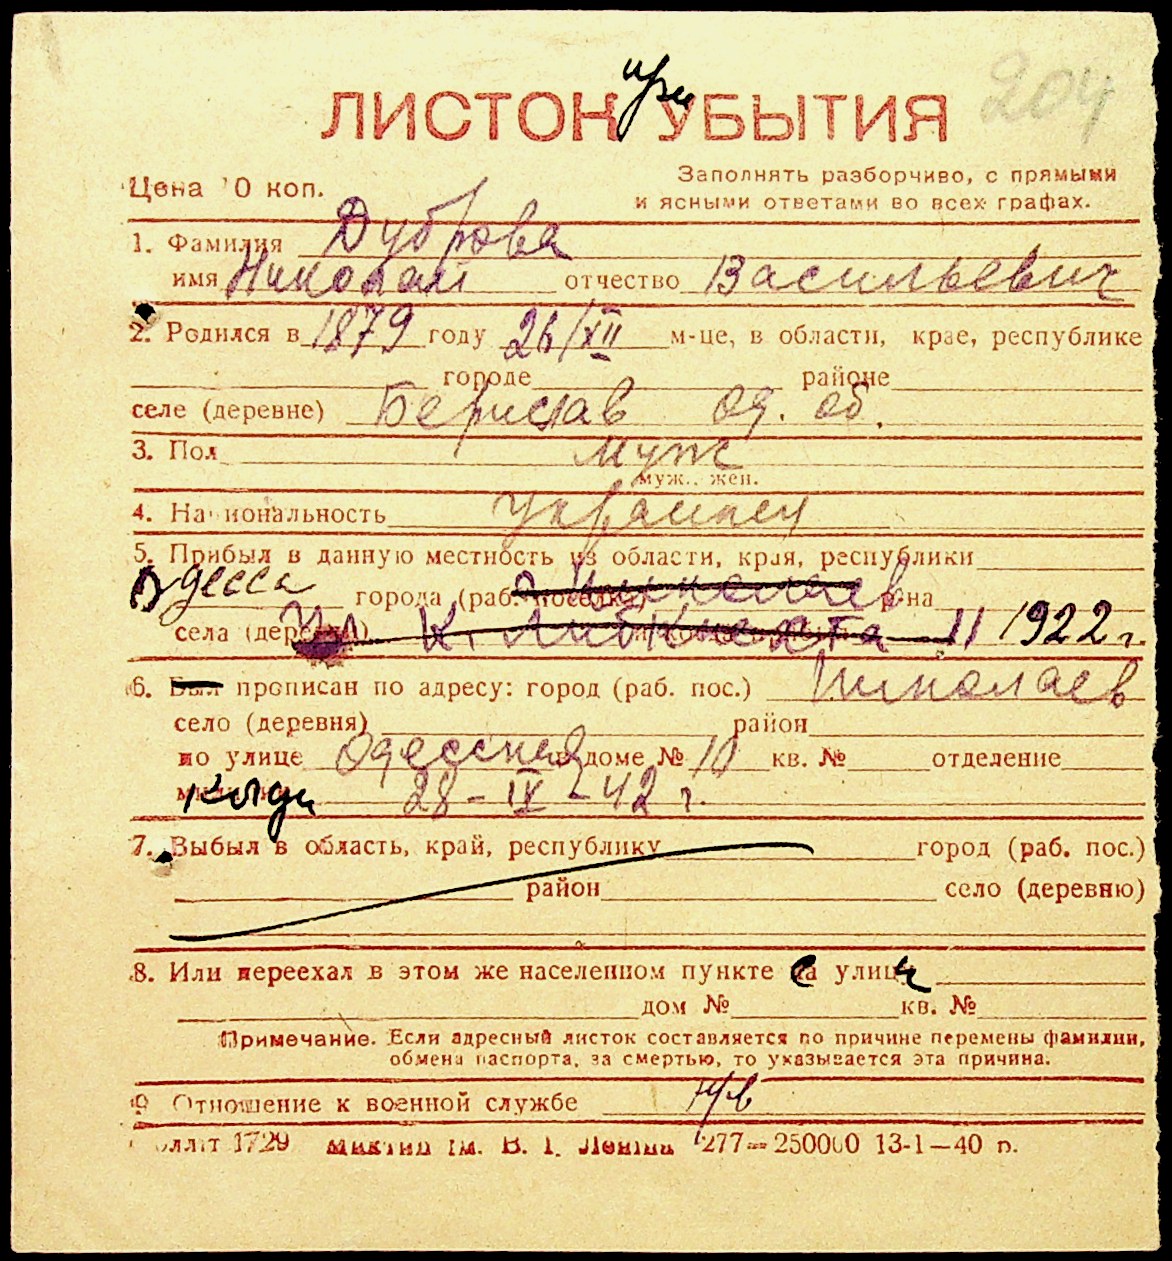 204
при
ЛИСТОК УБЫТИЯ
Цена 10 коп.
Заполнять разборчиво, с прямыми
и ясными ответами во всех графах.
1. Фамилия Дуброва
имя Николай отчество Васильевич
2. Родился в 1879 году 26/XII м-це, в области, крае, республике
городе районе
селе (деревне) Берислав Од. об.
3. Пол муж
муж., жен.
4. Национальность Украинец
5. Прибыл в данную местность из области, края, республики
Одесса города (раб. поселка) г. Николаев р-на
села (деревни) Ул. К. Либкнехта 11 1922 г.
6. Был прописан по адресу: город (раб. пос.) Николаев
село (деревня) район
по улице Одесская в доме № 10 кв. № отделение
28-IX-42 г.
7. Выбыл в область, край, республику город (раб. пос.)
район село (деревню)
8. Или переехал в этом же населенном пункте с улицы
дом № кв. №
Примечание. Если адресный листок составляется по причине перемены фамилии,
обмена паспорта, за смертью, то указывается эта причина.
9. Отношение к военной службе н/в
1729 ім. В. І. Леніна 277—250000 13-1—40 р.